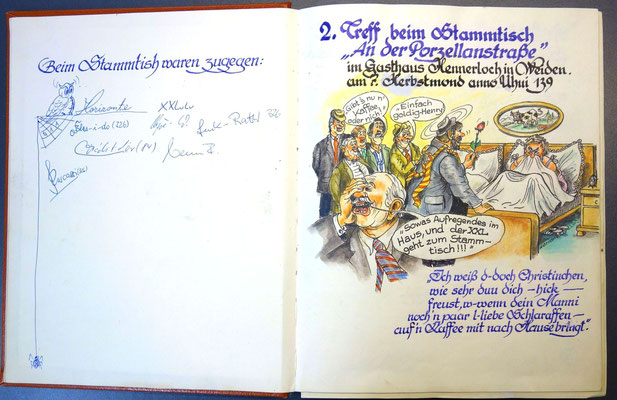 Beim Stammtish waren zugegen:
XXLulu
(226)
2. Treff beim Stammtisch
„An der Porzellanstraße"
im Gasthaus Hennerloch in Weiden.
am 7. Herbstmond anno Uhui 139
Gibt's nu n'
Kaffee,
oder nich!
„Einfach
goldig-Henny
"Sowas Aufregendes im
Haus, und der XXL
geht zum Stamm-
tisch!!!"
„Ich weiß d-doch Christinchen,
wie sehr duu dich – hick —
freust, w-wenn dein Manni
noch'n paar l-liebe Schlaraffen –
auf'n Kaffee mit nach Hause bringt."